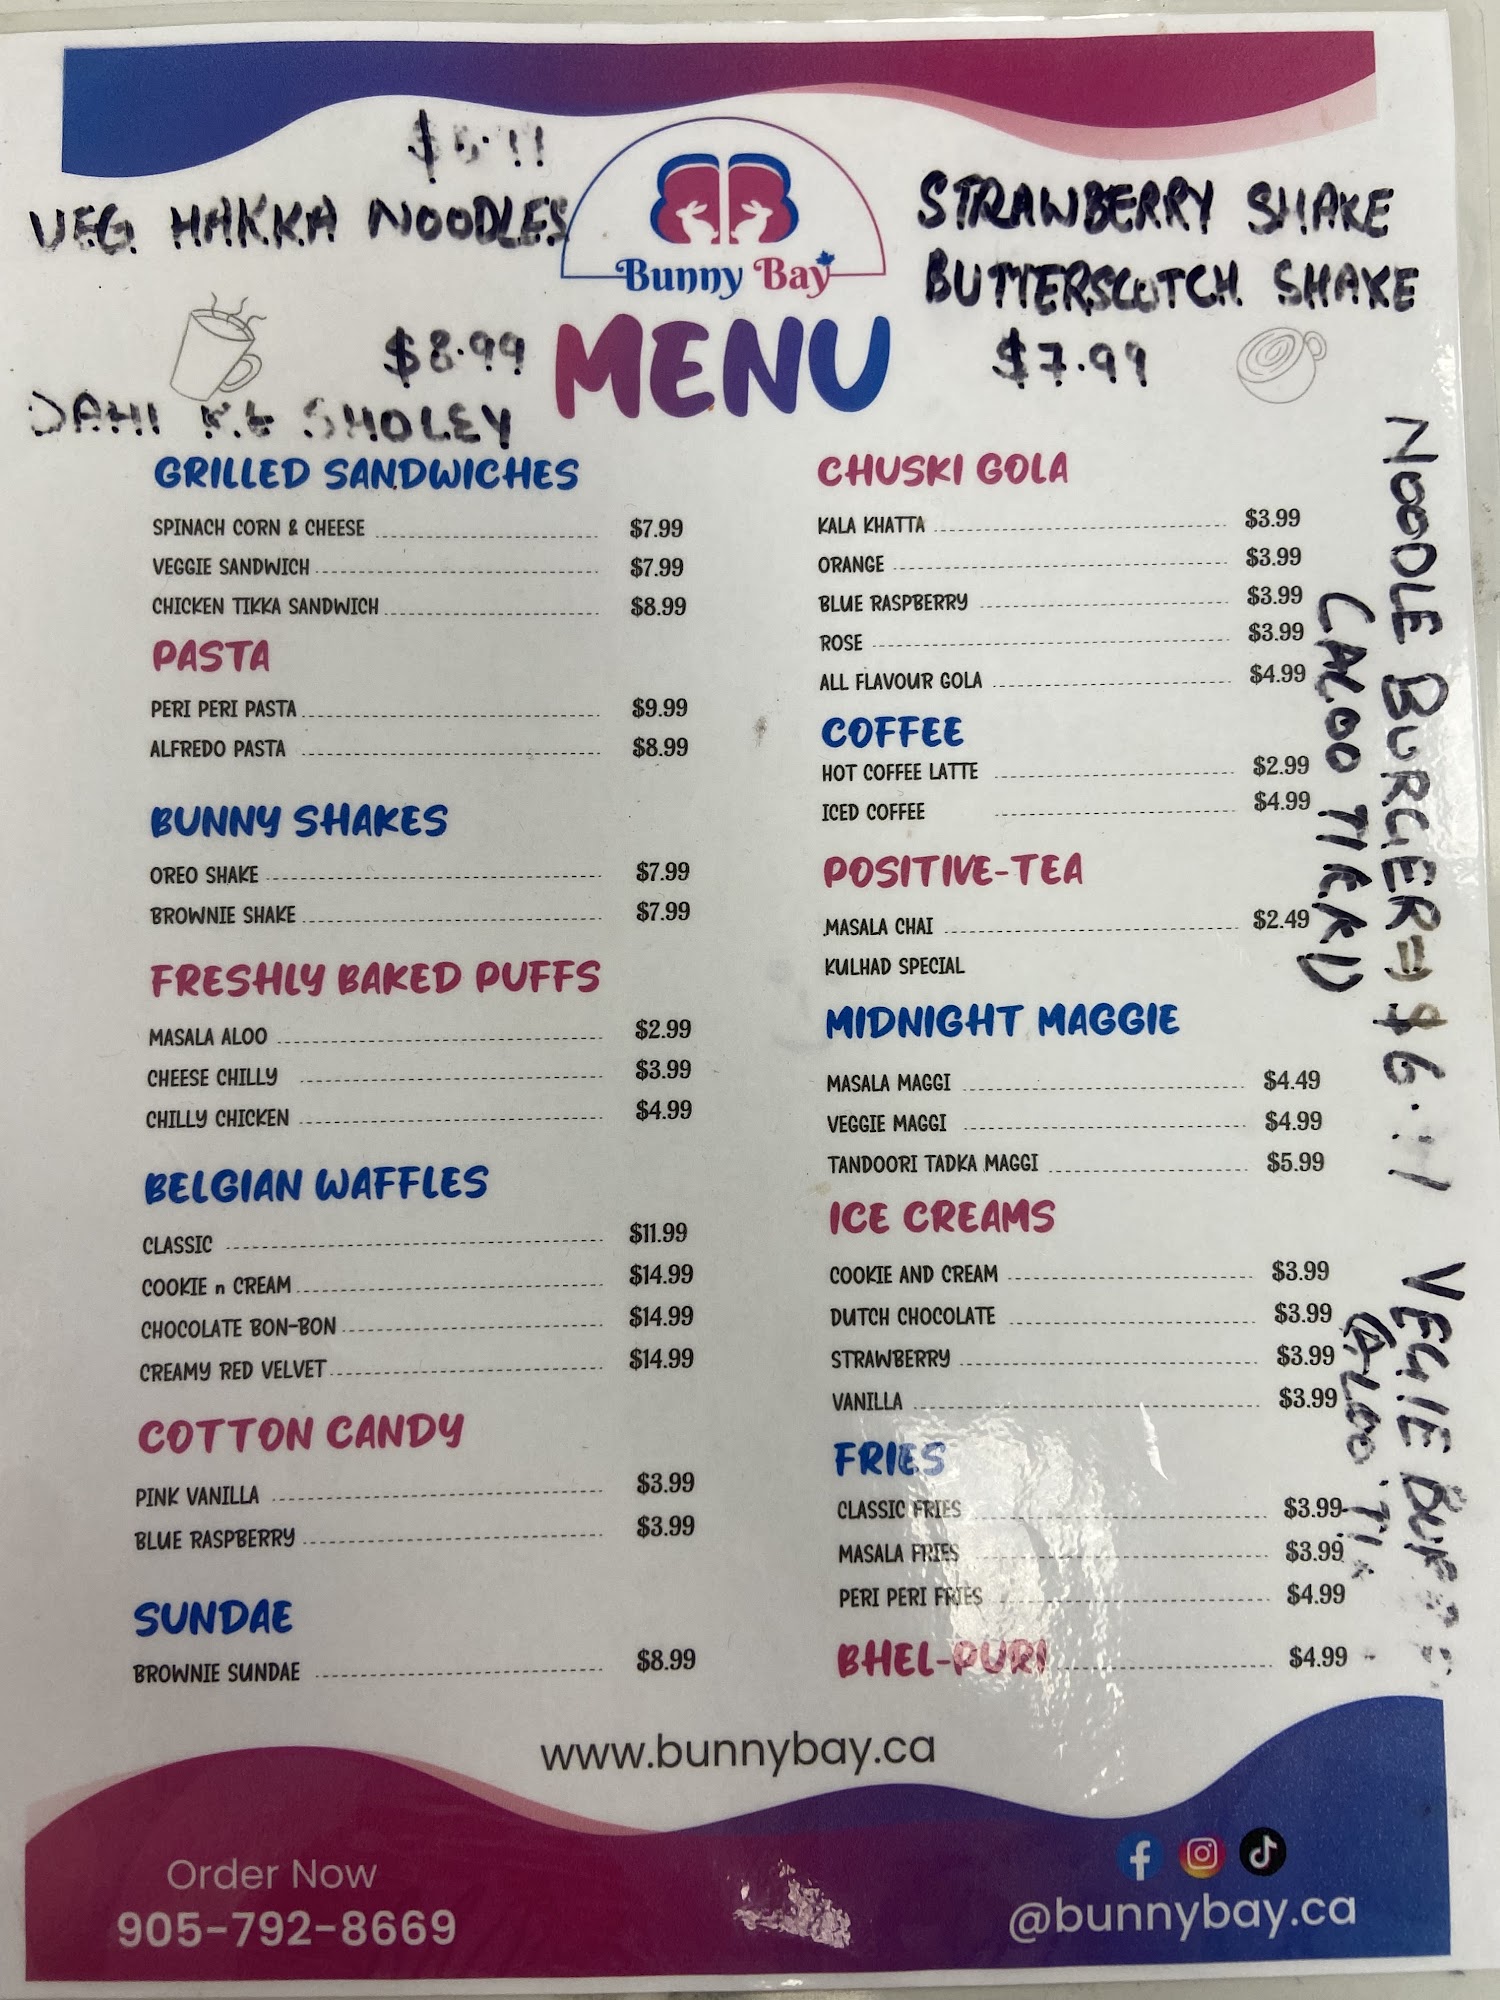 VEG HAKKA NOODLES
$8.99
DAHI KE SHOLEY
STRAWBERRY SHAKE
BUTTERSCOTCH SHAKE
$7.99
Bunny Bay
MENU
GRILLED SANDWICHES
SPINACH CORN & CHEESE $7.99
VEGGIE SANDWICH $7.99
CHICKEN TIKKA SANDWICH $8.99
PASTA
PERI PERI PASTA $9.99
ALFREDO PASTA $8.99
BUNNY SHAKES
OREO SHAKE $7.99
BROWNIE SHAKE $7.99
FRESHLY BAKED PUFFS
MASALA ALOO $2.99
CHEESE CHILLY $3.99
CHILLY CHICKEN $4.99
BELGIAN WAFFLES
CLASSIC $11.99
COOKIE n CREAM $14.99
CHOCOLATE BON-BON $14.99
CREAMY RED VELVET $14.99
COTTON CANDY
PINK VANILLA $3.99
BLUE RASPBERRY $3.99
SUNDAE
BROWNIE SUNDAE $8.99
CHUSKI GOLA
KALA KHATTA $3.99
ORANGE $3.99
BLUE RASPBERRY $3.99
ROSE $3.99
ALL FLAVOUR GOLA $4.99
COFFEE
HOT COFFEE LATTE $2.99
ICED COFFEE $4.99
POSITIVE-TEA
MASALA CHAI $2.49
KULHAD SPECIAL
MIDNIGHT MAGGIE
MASALA MAGGI $4.49
VEGGIE MAGGI $4.99
TANDOORI TADKA MAGGI $5.99
ICE CREAMS
COOKIE AND CREAM $3.99
DUTCH CHOCOLATE $3.99
STRAWBERRY $3.99
VANILLA $3.99
FRIES
CLASSIC FRIES $3.99
MASALA FRIES $3.99
PERI PERI FRIES $4.99
BHEL-PURI $4.99
NOODLE BURGER
VEGIE
www.bunnybay.ca
Order Now
905-792-8669
@bunnybay.ca